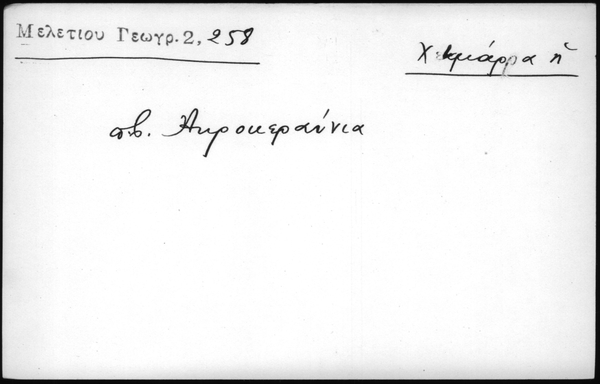 Μελετίου Γεωγρ. 2, 258
Χειμάρρα ἡ
πβ. Ἀκροκεραύνια